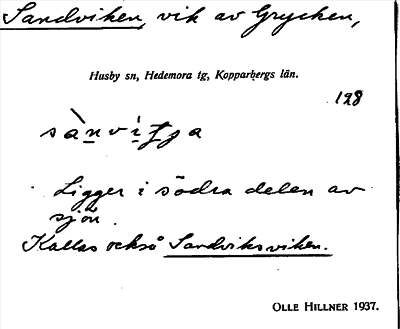 Sandviken, vik av Grycken,
Husby sn, Hedemora tg, Kopparbergs län.
128
Ligger i södra delen av
sjön.
Kallas också Sandviksviken.
OLLE HILLNER 1937.